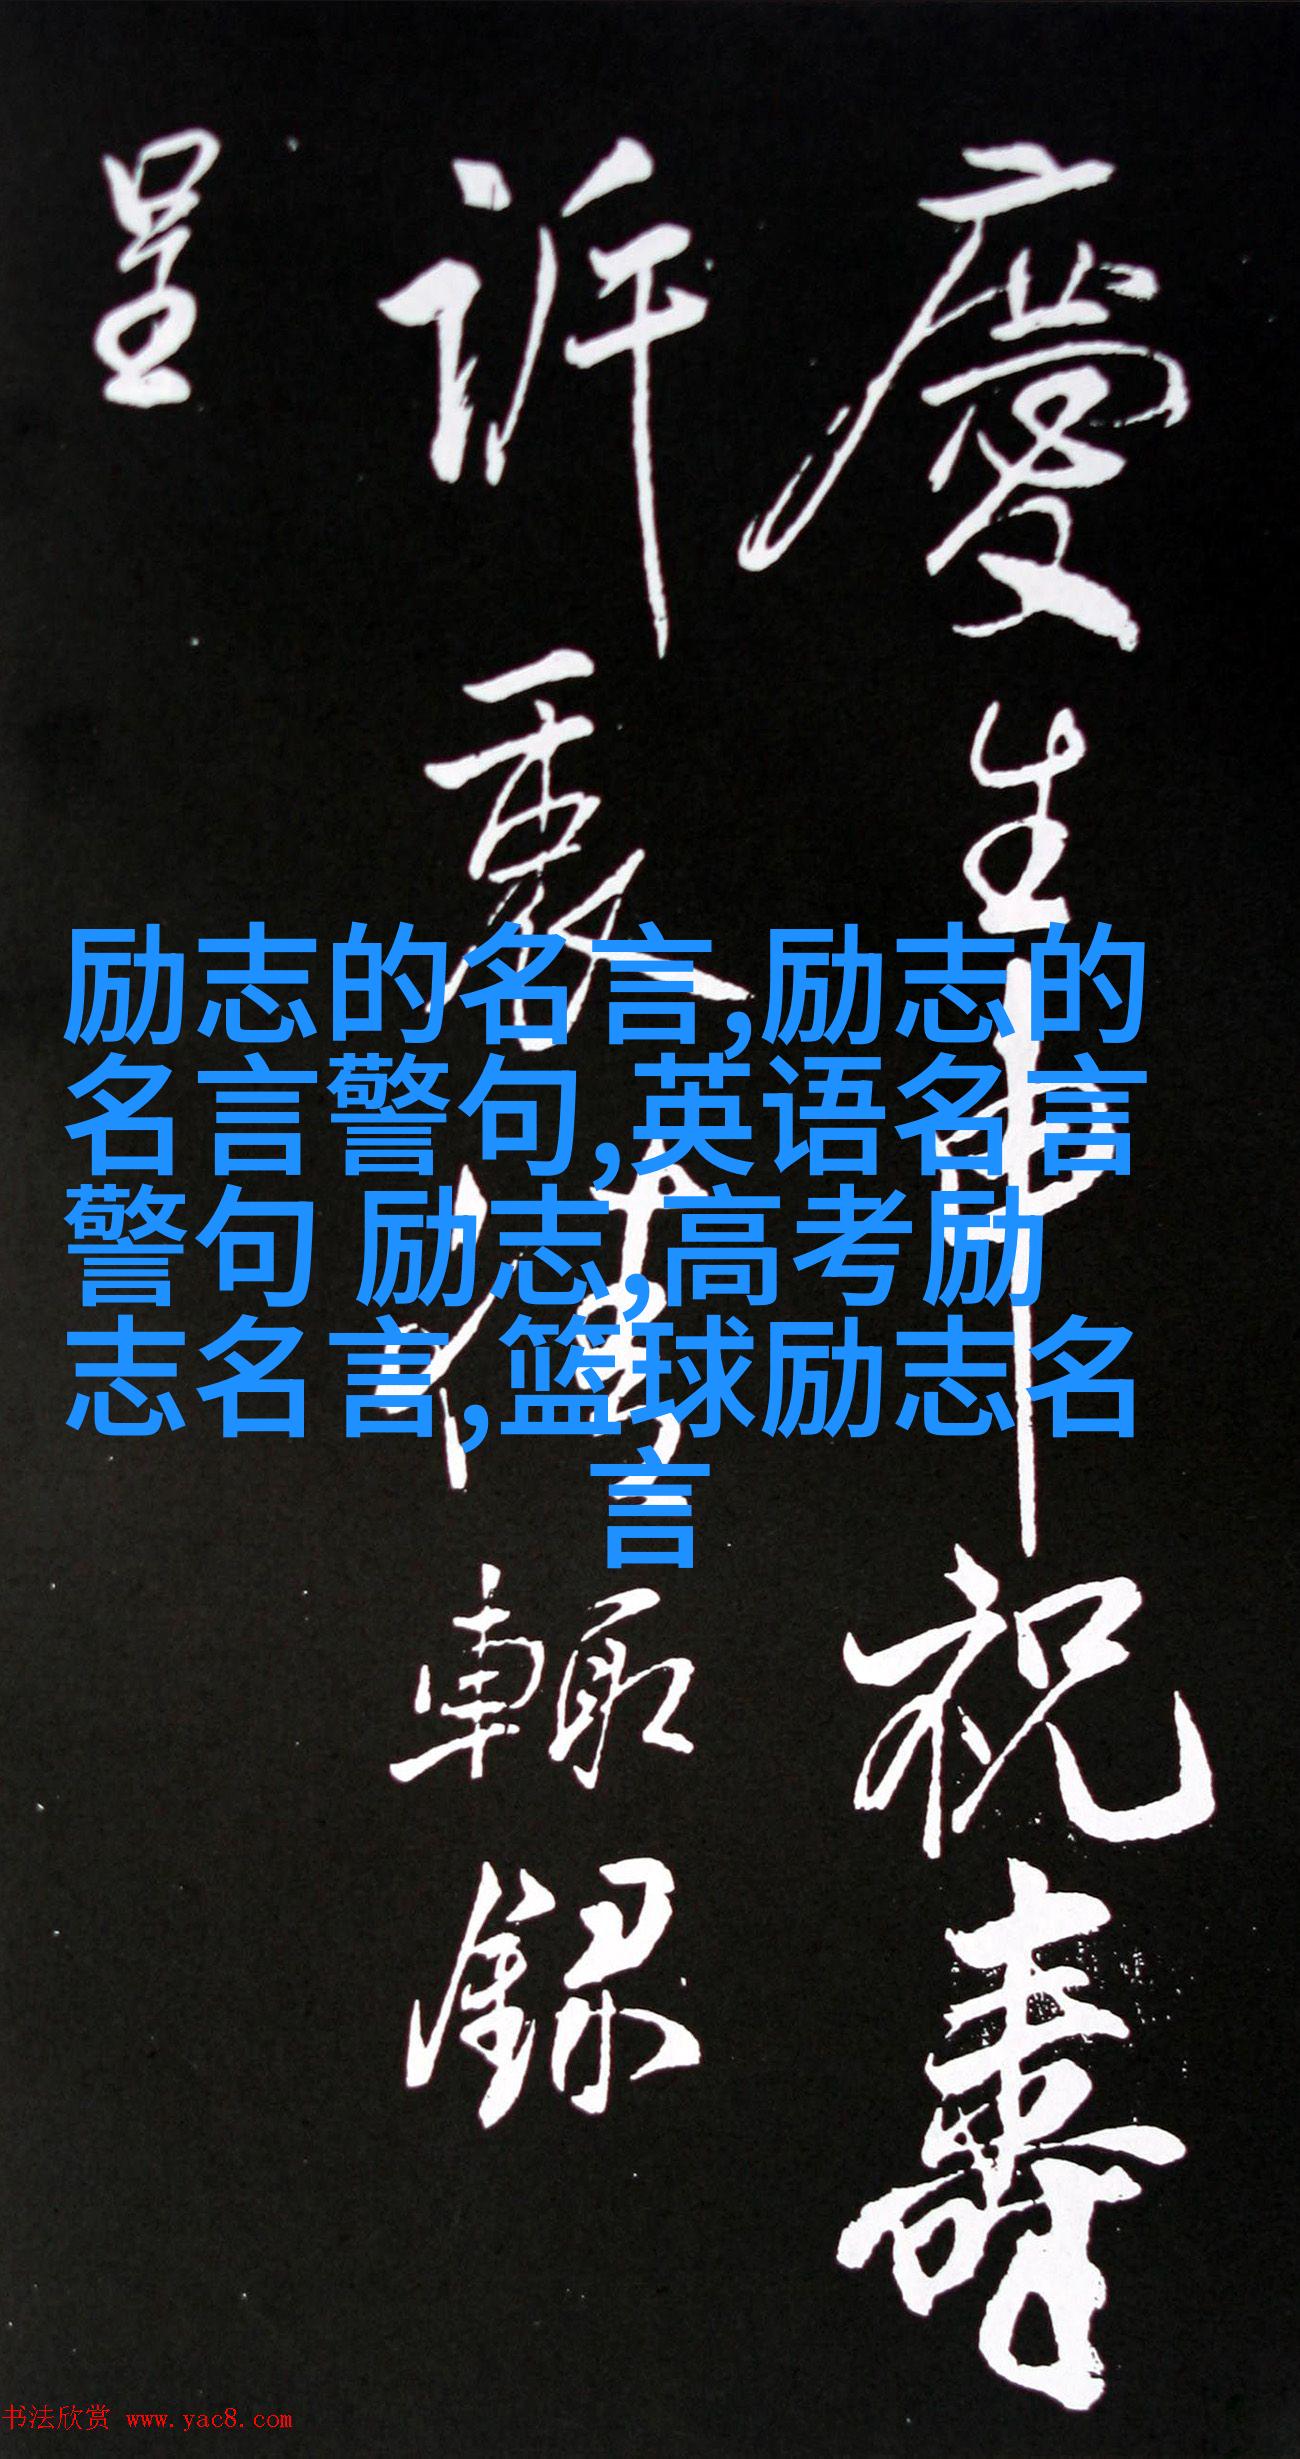 慶生申祝壽
訢輒錄
呈
励志的名言,励志的
名言警句,英语名言
警句 励志,高考励
志名言,篮球励志名
言
书法欣赏 www.yac8.com